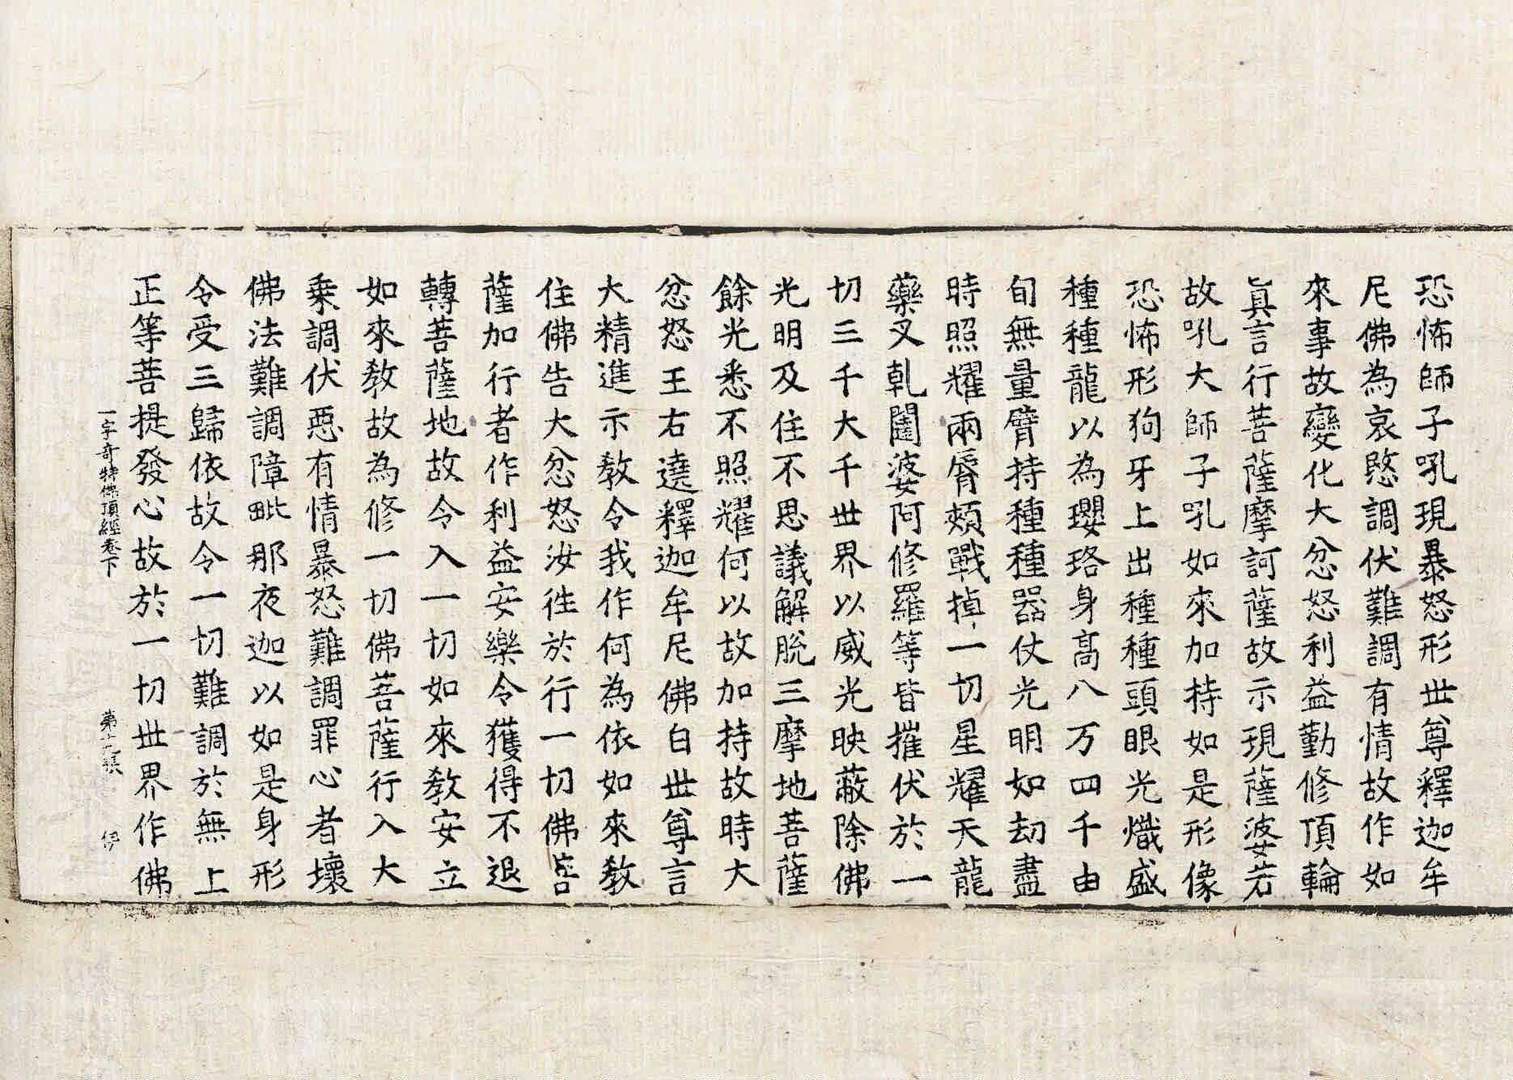 恐怖師子吼現暴怒形世尊釋迦牟
尼佛為哀愍調伏難調有情故作如
來事故變化大忿怒利益勤修頂輪
真言行菩薩摩訶薩故示現薩婆若
故吼大師子吼如來加持如是形像
恐怖形狗牙上出種種頭眼光熾盛
種種龍以為瓔珞身高八万四千由
旬無量臂持種種器仗光明如劫盡
時照耀兩脣頰戰掉一切星耀天龍
藥叉乹闥婆阿修羅等皆摧伏於一
切三千大千世界以威光映蔽除佛
光明及住不思議解脫三摩地菩薩
餘光悉不照耀何以故加持故時大
忿怒王右遶釋迦牟尼佛白世尊言
大精進示教令我作何為依如來教
住佛告大忿怒汝徃於行一切佛菩
薩加行者作利益安樂令獲得不退
轉菩薩地故令入一切如來教安立
如來教故為修一切佛菩薩行入大
乗調伏惡有情暴怒難調罪心者壞
佛法難調障毗那夜迦以如是身形
令受三歸依故令一切難調於無上
正等菩提發心故於一切世界作佛
一字奇特佛頂經卷下　第十九張